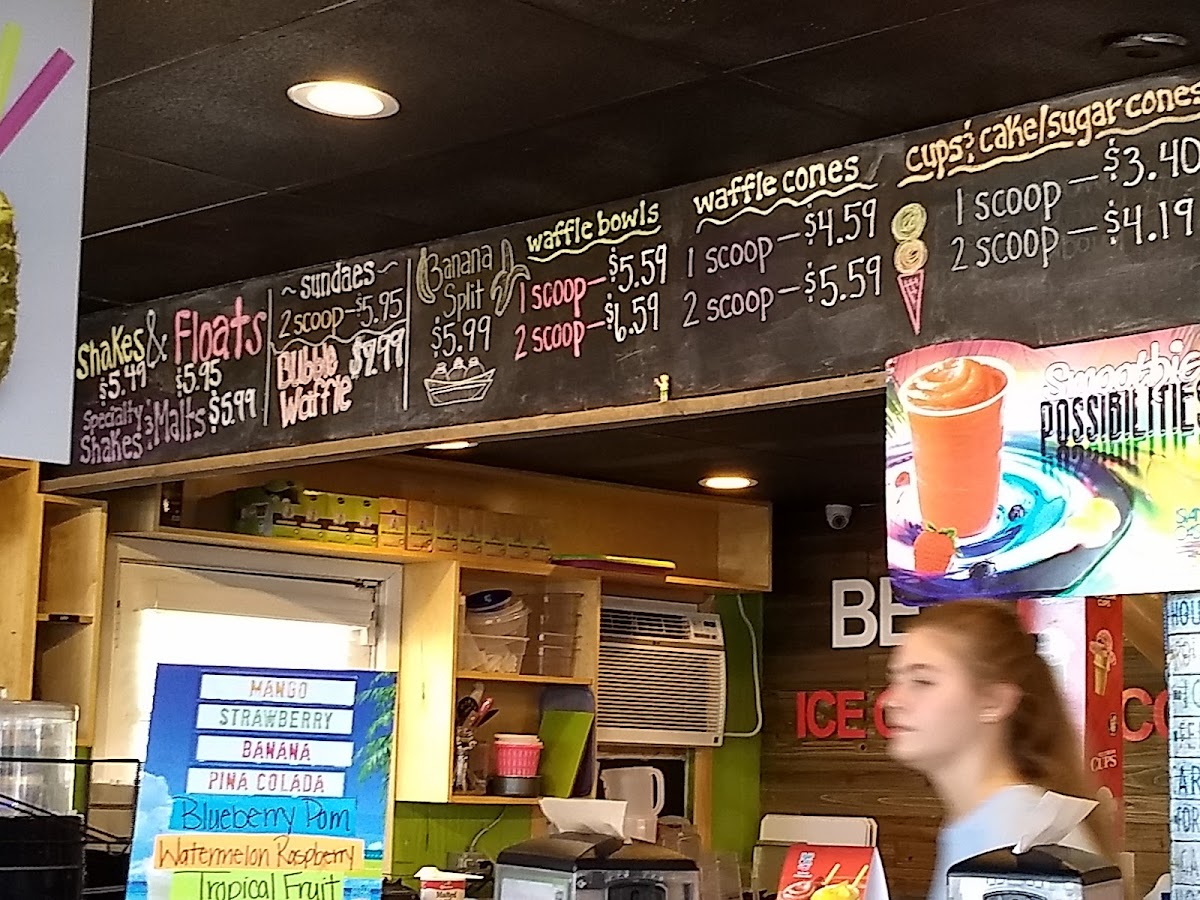 Shakes & Floats
$5.49 $5.95
Specialty Shakes & Malts $5.99
~ sundaes ~
2 scoop - $5.95
Bubble Waffle $2.99
Banana Split
$5.99
waffle bowls
1 scoop - $5.59
2 scoop - $6.59
waffle cones
1 scoop - $4.59
2 scoop - $5.59
cups & cake/sugar cones
1 scoop - $3.40
2 scoop - $4.19
Smoothie
POSSIBILITIES
MANGO
STRAWBERRY
BANANA
PINA COLADA
Blueberry Pom
Watermelon Raspberry
Tropical Fruit
BE
ICE
CUPS
HOU
FOR